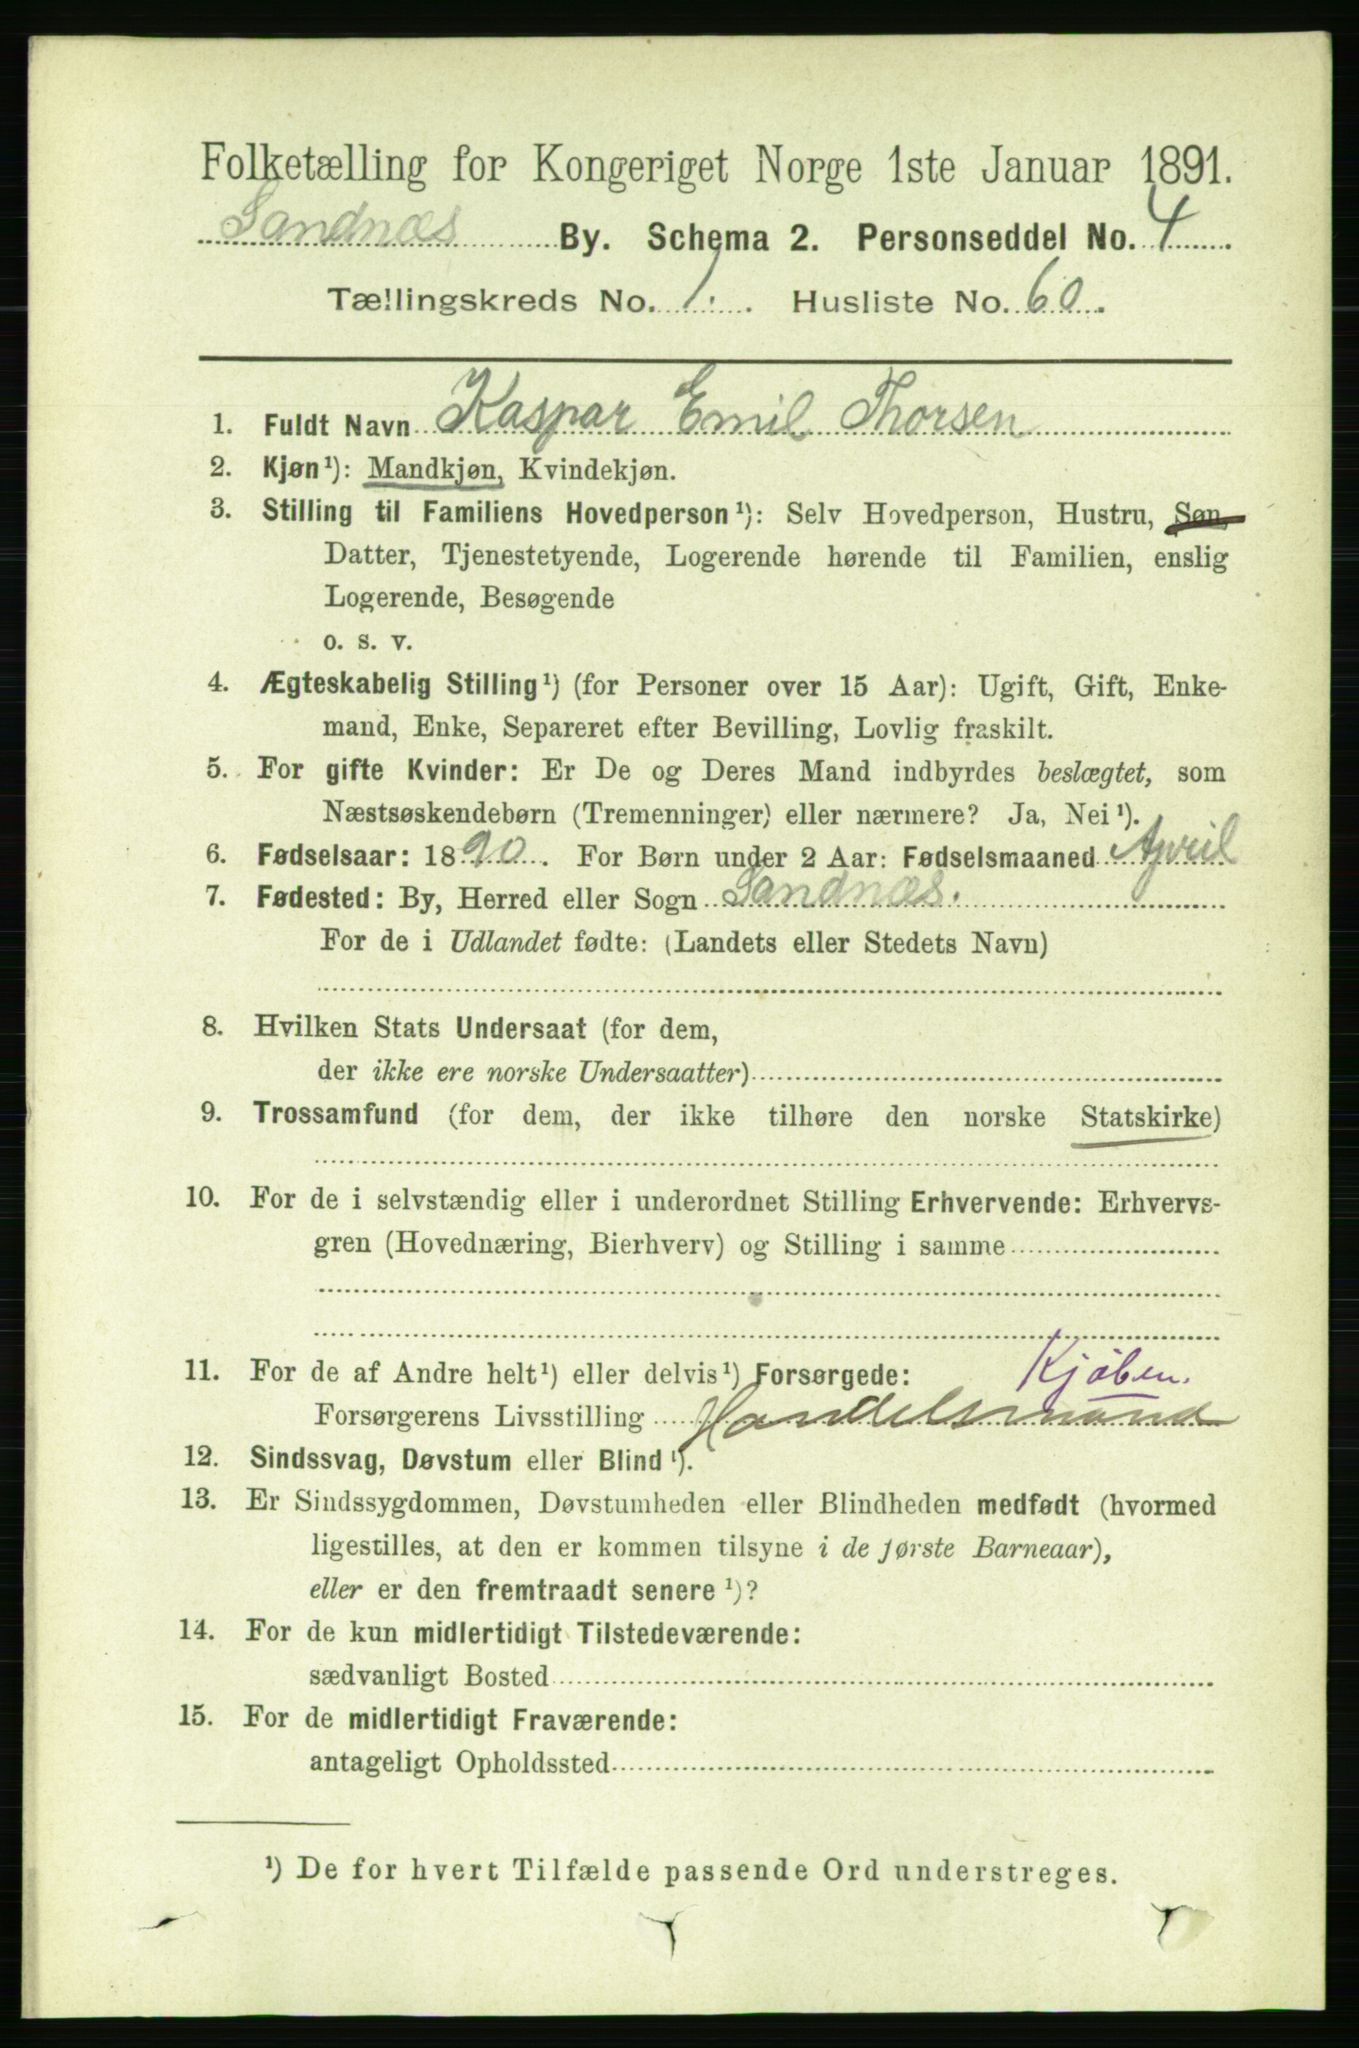 Folketælling for Kongeriget Norge 1ste Januar 1891.
Sandnæs By. Schema 2. Personseddel No. 4
Tællingskreds No. 1. Husliste No. 60.
1. Fuldt Navn Kaspar Emil Thorsen
2. Kjøn¹): Mandkjøn, Kvindekjøn.
3. Stilling til Familiens Hovedperson¹): Selv Hovedperson, Hustru, Søn,
Datter, Tjenestetyende, Logerende hørende til Familien, enslig
Logerende, Besøgende
o. s. v.
4. Ægteskabelig Stilling¹) (for Personer over 15 Aar): Ugift, Gift, Enke-
mand, Enke, Separeret efter Bevilling, Lovlig fraskilt.
5. For gifte Kvinder: Er De og Deres Mand indbyrdes beslægtet, som
Næstsøskendebørn (Tremenninger) eller nærmere? Ja, Nei¹).
6. Fødselsaar: 1890. For Børn under 2 Aar: Fødselsmaaned April
7. Fødested: By, Herred eller Sogn Sandnæs.
For de i Udlandet fødte: (Landets eller Stedets Navn)
8. Hvilken Stats Undersaat (for dem,
der ikke ere norske Undersaatter)
9. Trossamfund (for dem, der ikke tilhøre den norske Statskirke)
10. For de i selvstændig eller i underordnet Stilling Erhvervende: Erhvervs-
gren (Hovednæring, Bierhverv) og Stilling i samme
11. For de af Andre helt¹) eller delvis¹) Forsørgede: Kjøben.
Forsørgerens Livsstilling Handelsmand
12. Sindssvag, Døvstum eller Blind¹).
13. Er Sindssygdommen, Døvstumheden eller Blindheden medfødt (hvormed
ligestilles, at den er kommen tilsyne i de første Barneaar),
eller er den fremtraadt senere¹)?
14. For de kun midlertidigt Tilstedeværende:
sædvanligt Bosted
15. For de midlertidigt Fraværende:
antageligt Opholdssted
¹) De for hvert Tilfælde passende Ord understreges.